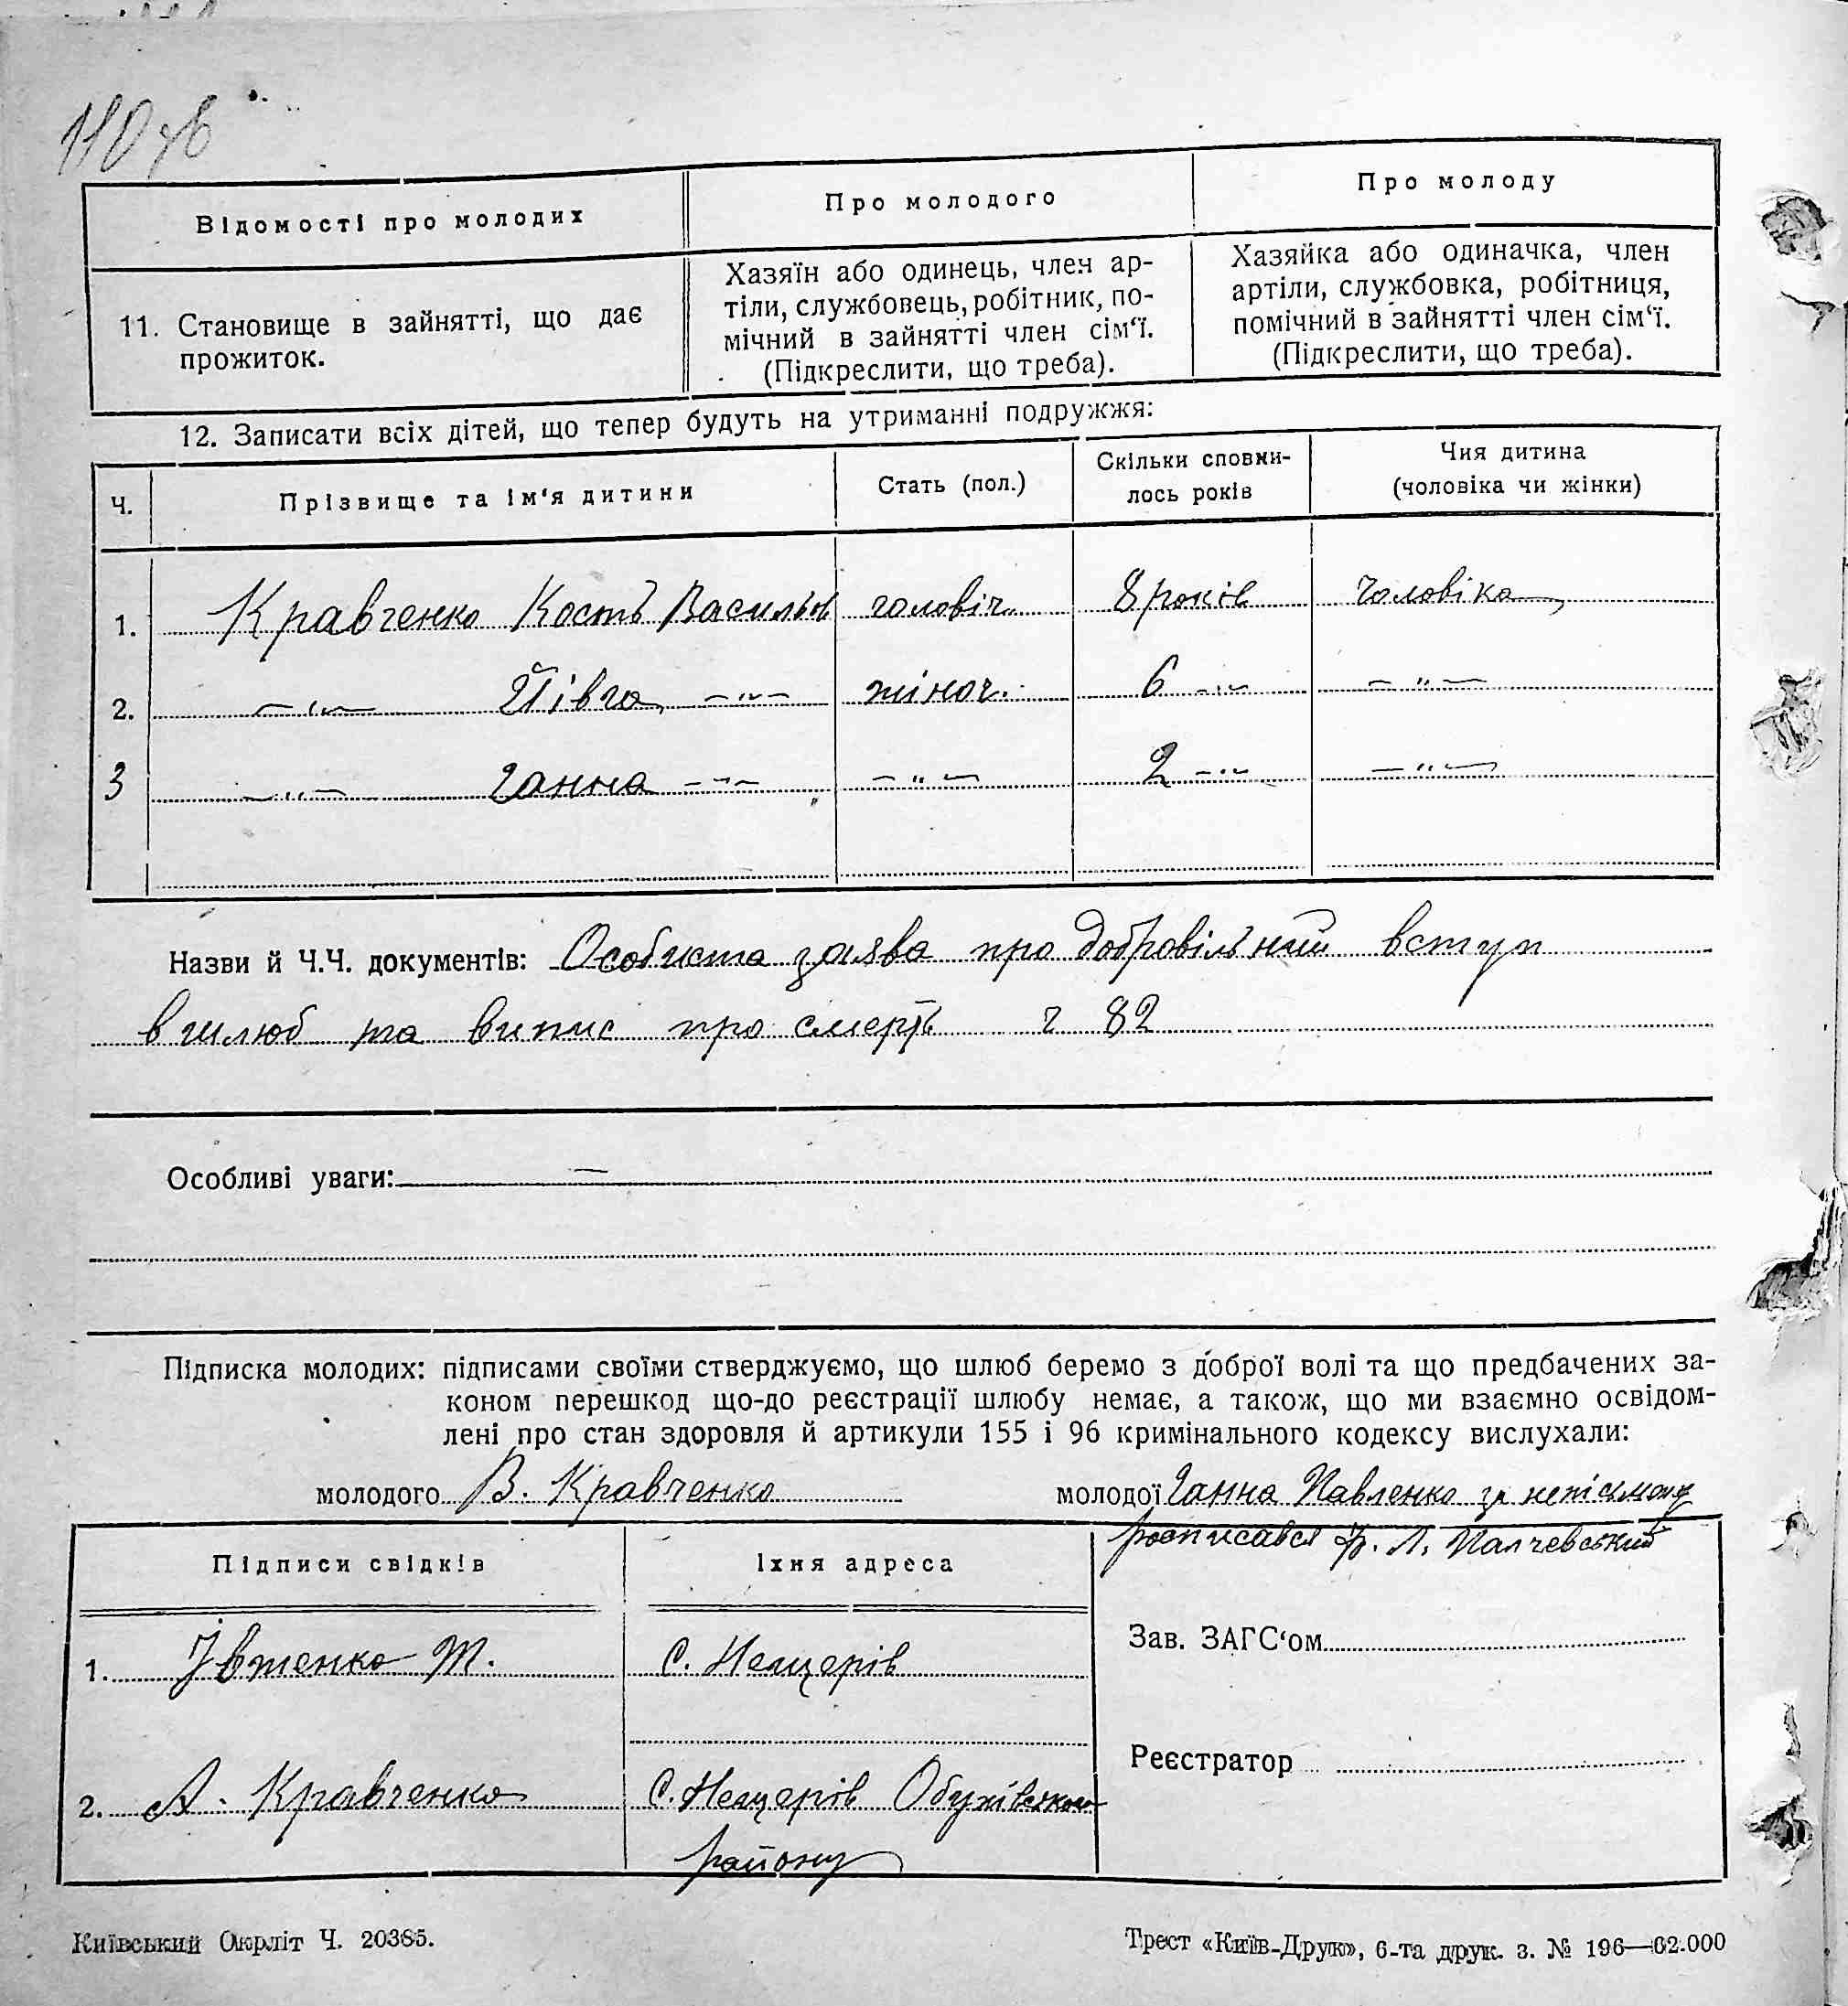 110 зв
Відомості про молодих
Про молодого
Про молоду
11. Становище в зайнятті, що дає
прожиток.
Хазяїн або одинець, член ар-
тіли, службовець, робітник, по-
мічний в зайнятті член сім‘ї.
(Підкреслити, що треба).
Хазяйка або одиначка, член
артіли, службовка, робітниця,
помічний в зайнятті член сім‘ї.
(Підкреслити, що треба).
12. Записати всіх дітей, що тепер будуть на утриманні подружжя:
Ч.
Прізвище та ім‘я дитини
Стать (пол.)
Скільки сповни-
лось років
Чия дитина
(чоловіка чи жінки)
1. Кравченко Кость Васильов чоловіч. 8 років чоловіка
2. —„— Йівга —„— жіноч. 6 —„— —„—
3 —„— Ганна —„— —„— 2 —„— —„—
Назви й Ч.Ч. документів: Особиста заява про добровільний вступ
в шлюб та випис про смерть ч 82
Особливі уваги: —
Підписка молодих: підписами своїми стверджуємо, що шлюб беремо з доброї волі та що предбачених за-
коном перешкод що-до реєстрації шлюбу немає, а також, що ми взаємно освідом-
лені про стан здоровля й артикули 155 і 96 кримінального кодексу вислухали:
молодого В. Кравченко
молодої Ганна Павленко за
розписався Ф. Л. Палчевський
Підписи свідків
Їхня адреса
1. Івженко М.
С. Нещерів
2. А. Кравченко
С. Нещерів Обухівського
району
Зав. ЗАГС‘ом
Реєстратор
Київський Окрліт Ч. 20385.
Трест «Київ-Друк», 6-та друк. з. № 196—62.000